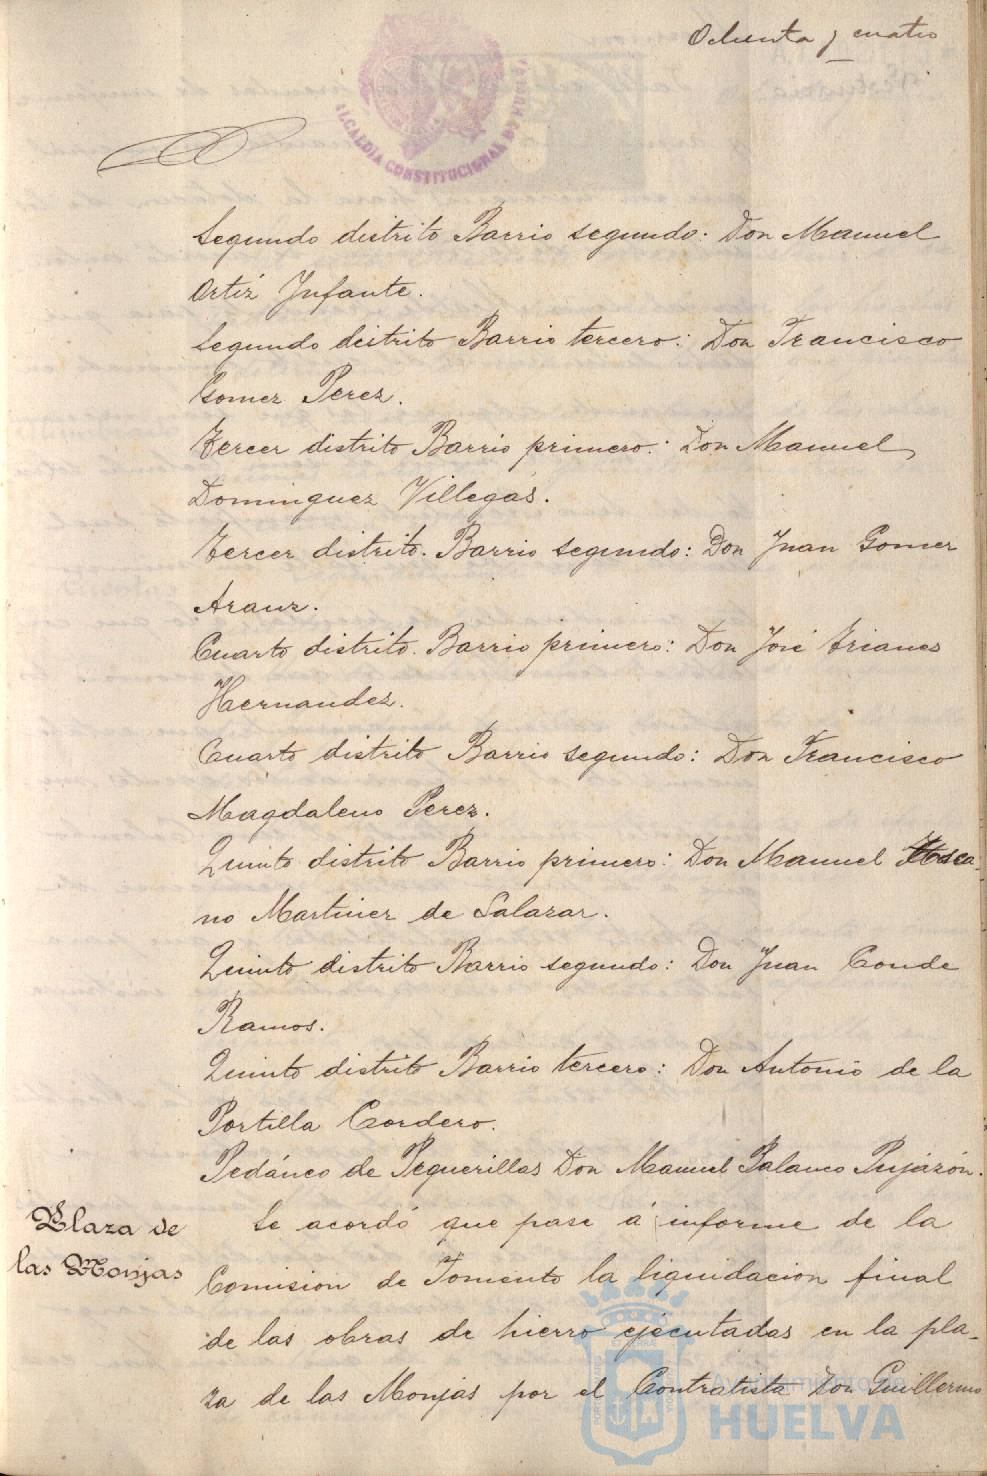 Ochenta y cuatro
ALCALDIA CONSTITUCIONAL DE HUELVA
Segundo distrito Barrio segundo. Don Manuel
Ortiz Infante.
Segundo distrito Barrio tercero: Don Francisco
Gomez Perez.
Tercer distrito Barrio primero: Don Manuel
Dominguez Villegas.
Tercer distrito. Barrio segundo: Don Juan Gomez
Aranz.
Cuarto distrito. Barrio primero: Don José Trianes
Hernandez.
Cuarto distrito Barrio segundo: Don Francisco
Magdaleno Perez.
Quinto distrito Barrio primero: Don Manuel
no Martinez de Salazar.
Quinto distrito Barrio segundo: Don Juan Conde
Ramos.
Quinto distrito Barrio tercero: Don Antonio de la
Portilla Cordero.
Pedáneo de Peguerillas Don Manuel Palanco Pujazón.
Plaza de
las Monjas
Se acordó que pase á informe de la
Comision de Fomento la liquidacion final
de las obras de hierro ejecutadas en la pla-
za de las Monjas por el Contratista Don Guillermo
Ayuntamiento de
HUELVA